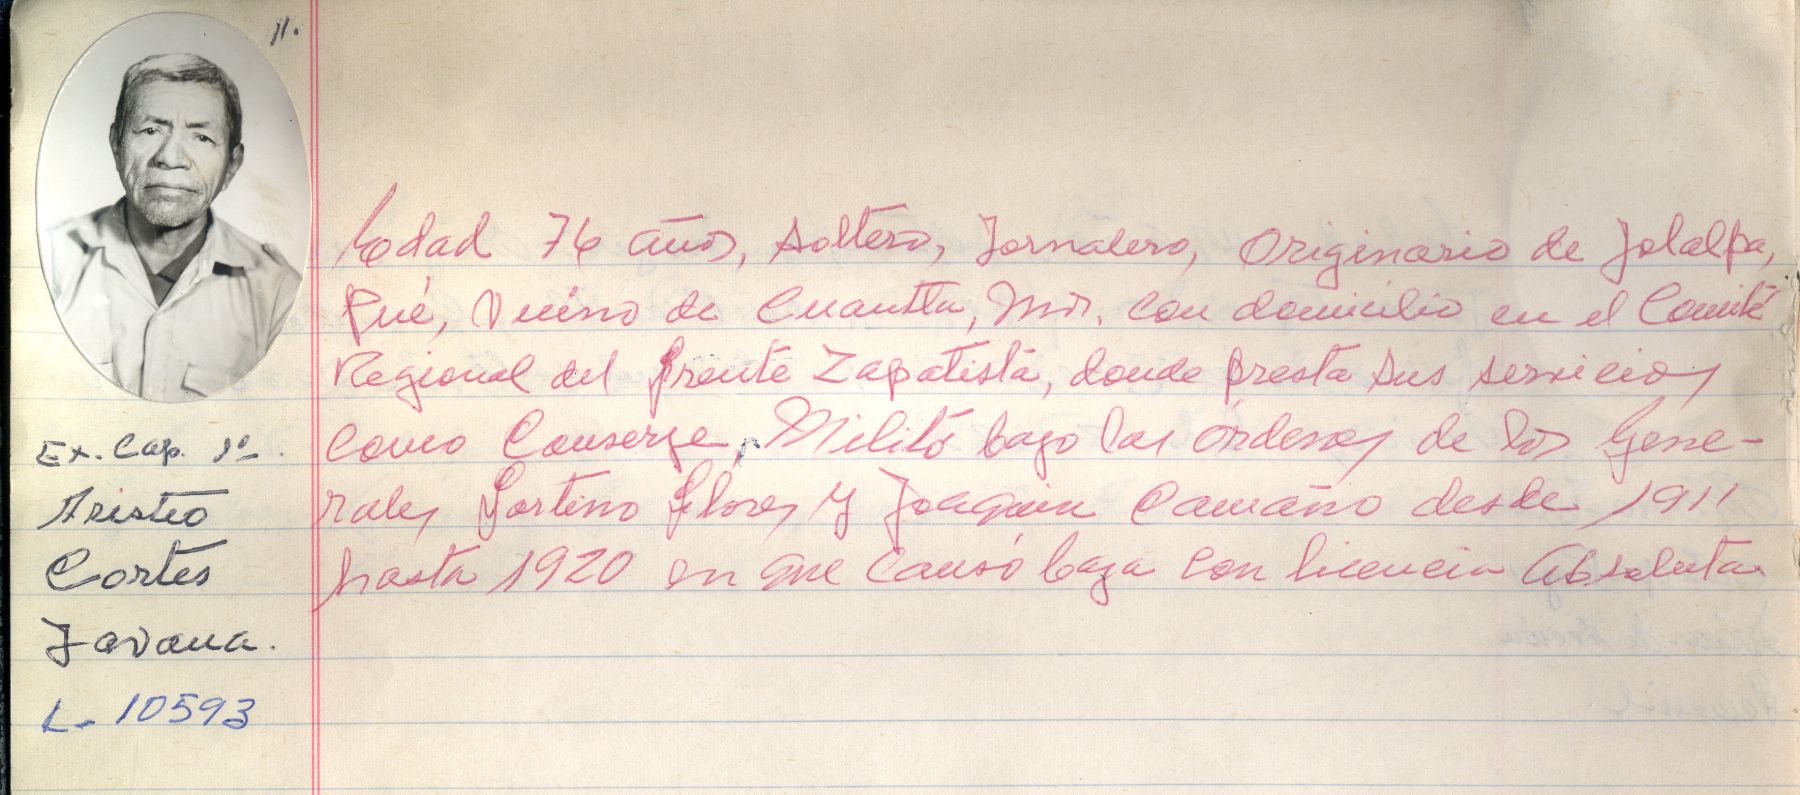 11.
Edad 76 años, soltero, Jornalero, Originario de Jolalpa,
Pué, Vecino de Cuautla, Mor. con domicilio en el Comité
Regional del Frente Zapatista, donde presta sus servicios
como Conserge, Militó bajo las órdenes de los Gene-
rales Fortino Flores y Joaquin Camaño desde 1911
hasta 1920 en que causó baja con licencia Absoluta
Ex. Cap. 1º.
Aristeo
Cortes
L. 10593